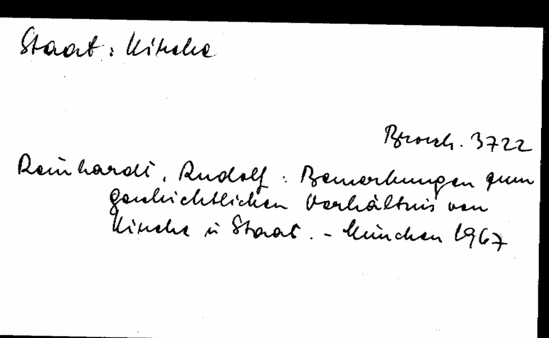 Staat : Kirche
Brosch. 3722
Reinhardt, Rudolf : Bemerkungen zum
geschichtlichen Verhältnis von
Kirche u Staat. - München 1967